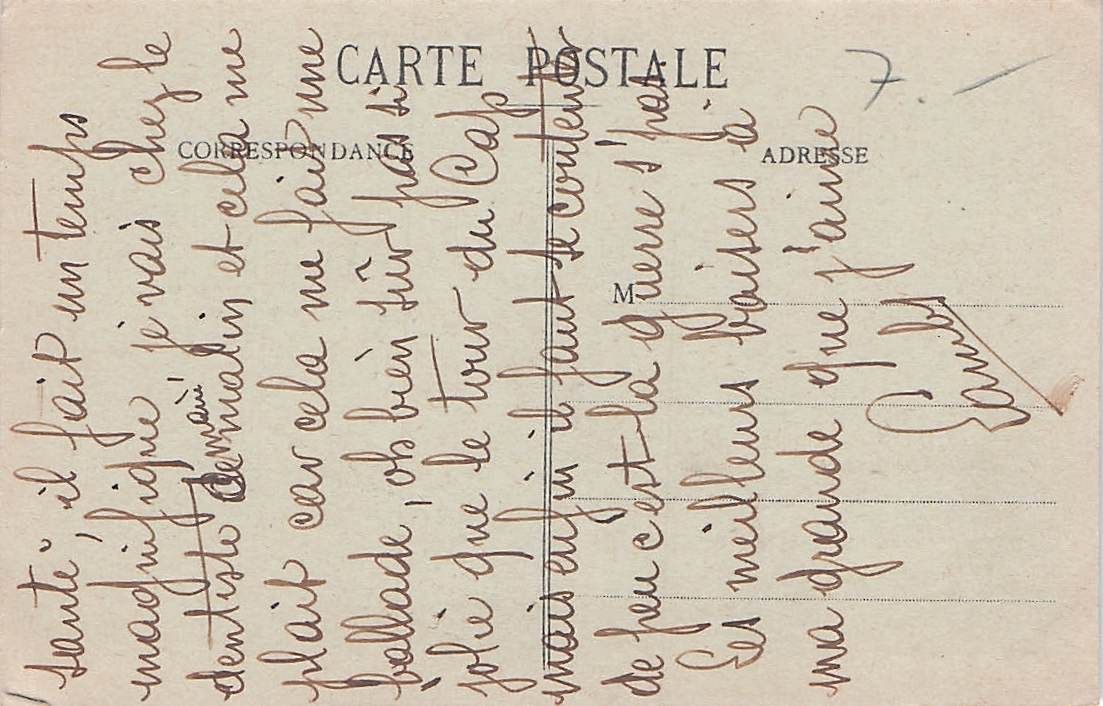 CARTE POSTALE
CORRESPONDANCE
ADRESSE
M
7.
santé, il fait un temps
magnifique je vais chez le
dentiste demain matin et cela me
plait car cela me fait une
ballade, oh bien sûr pas si
jolie que le tour du Cap
mais enfin il faut se contenter
de peu c'est la guerre s'pas!
Les meilleurs baisers à
ma grande que j'aime